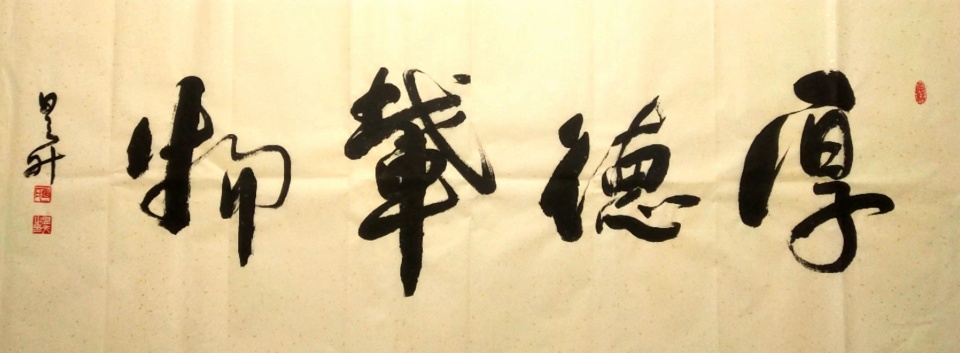 厚德載物
昊升